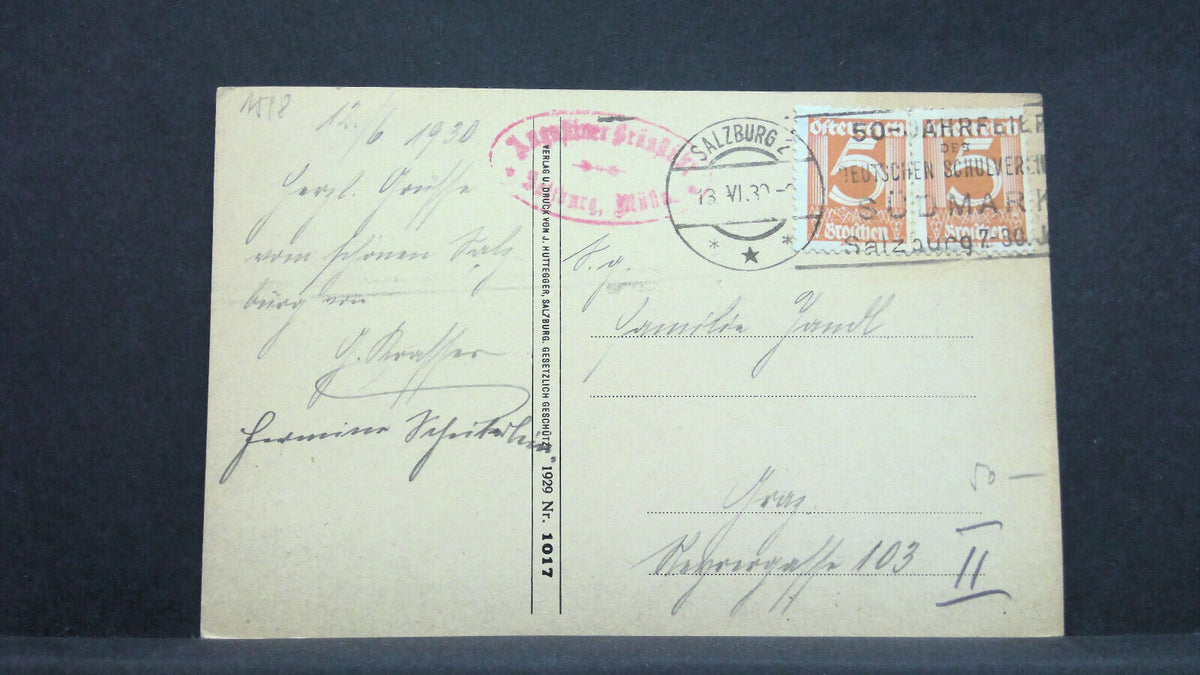 1518
12./6 1930
Herzl. Grüsse
vom schönen Salz-
burg von
Hermine
Augustiner Bräustübl
Salzburg, Mülln
VERLAG U. DRUCK VON J. HUTTEGGER, SALZBURG. GESETZLICH GESCHÜTZT. 1929 Nr. 1017
SALZBURG 2
13. VI. 30
5 5
Groschen Groschen
50-JAHRFEIER
DES
DEUTSCHEN SCHULVEREIN
SÜDMARK
Salzburg
Familie Jandl
Graz.
103
50 —
II